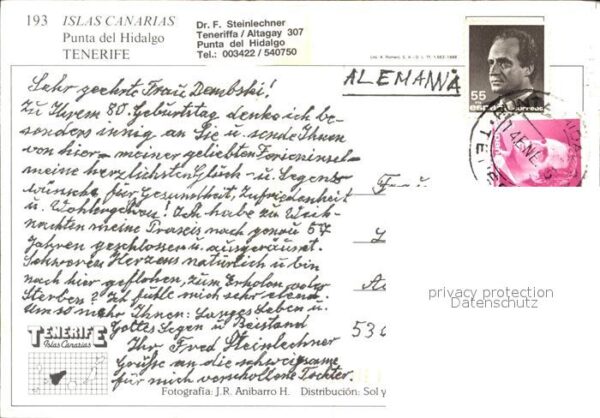 193 ISLAS CANARIAS
Punta del Hidalgo
TENERIFE
Dr. F. Steinlechner
Teneriffa / Altagay 307
Punta del Hidalgo
Tel.: 003422 / 540750
55
ALEMANIA
Sehr geehrte Frau Dembski!
Zu Ihrem 80. Geburtstag denke ich be-
sonders innig an Sie u. sende Ihnen
von hier - meiner geliebten Ferieninsel -
meine herzlichsten Glück- u. Segens
wünsche für Gesundheit, Zufriedenheit
u. Wohlergehen! Ich habe zu Weih-
nachten meine Praxis nach genau 57
Jahren geschlossen u. ausgeräumt.
Schweren Herzens natürlich u. bin
nach hier geflohen, zum Erholen oder
Sterben? Ich fühle mich sehr elend.
Umso mehr Ihnen: Langes Leben u.
Gottes Segen u. Beistand
Ihr Fred Steinlechner
Grüsse an die schweigsame
für mich verschollene Tochter.
Frau
53
privacy protection
Datenschutz
TENERIFE
Islas Canarias
Fotografía: J.R. Anibarro H. Distribución: Sol y